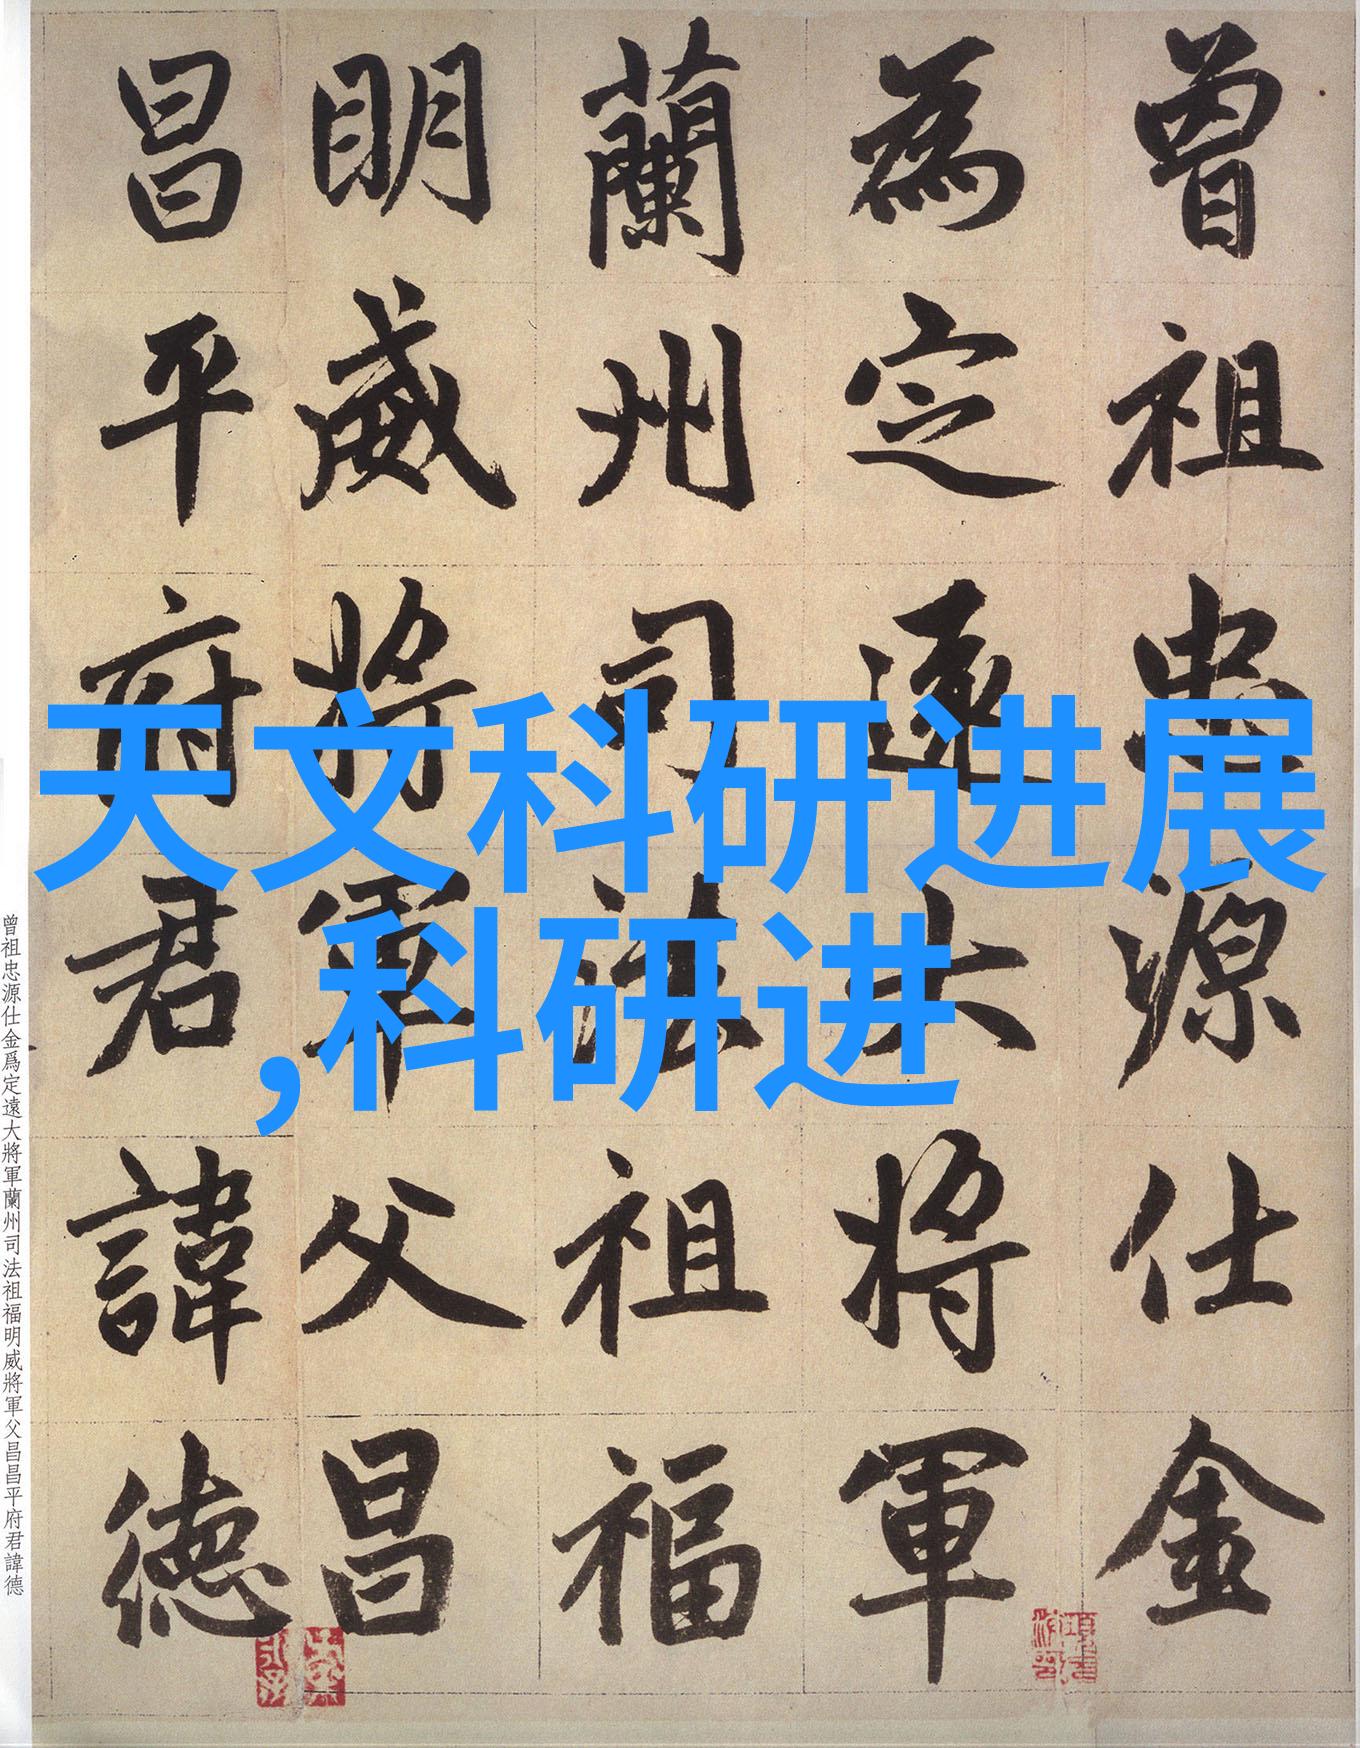 曾祖忠源仕金
為定遠大將軍
蘭州司法祖福
明威將軍父昌
昌平府君諱德
天文科研进展
,科研进
曾祖忠源仕金爲定遠大將軍蘭州司法祖福明威將軍父昌昌平府君諱德